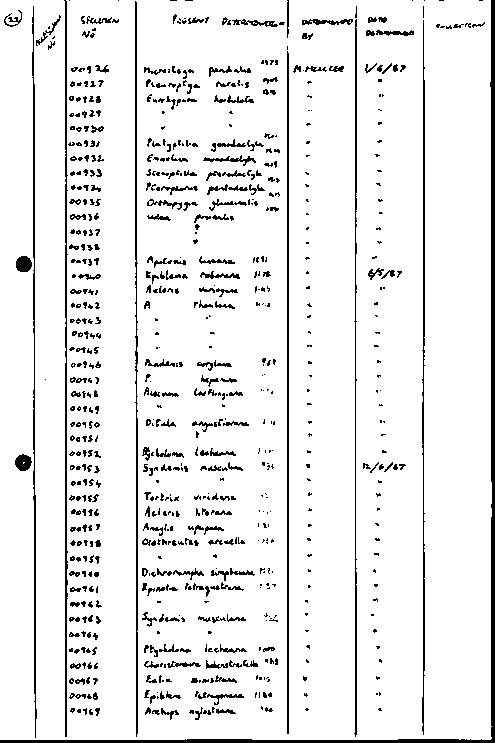 22
SPECIMEN Nº PRESENT DETERMINATION DETERMINED BY DATE DETERMINED COLLECTION
00926 M. MELLER 1/6/87
00927 Pleuroptya ruralis "
00928 Eurrhypara hortulata " "
00929 " " " "
00930 " " " "
00931 Platyptilia gonodactyla " "
00932 Emmelina monodactyla " "
00933 Stenoptilia pterodactyla " "
00934 Pterophorus pentadactyla " "
00935 Orthopygia glaucinalis " "
00936 Udea prunalis " "
00937 " " "
00938 " " "
00939 Apotomis " "
00940 Epiblema roborana 1178 " 6/5/87
00941 Acleris variegana " "
00942 A rhombana " "
00943 " " " "
00944 " " " "
00945 " " " "
00946 Pandemis corylana 969 " "
00947 P. heparana " "
00948 " "
00949 " " " "
00950 Ditula angustiorana " "
00951 " " "
00952 Ptycholoma lecheana " "
00953 Syndemis musculana " 12/6/87
00954 " " " "
00955 Tortrix viridana " "
00956 Acleris literana " "
00957 " "
00958 Olethreutes arcuella " "
00959 " " " "
00960 Dichrorampha " "
00961 Epinotia tetraquetrana " "
00962 " " " "
00963 Syndemis musculana " "
00964 " " " "
00965 Ptycholoma lecheana " "
00966 Choristoneura hebenstreitella " "
00967 Eulia ministrana " "
00968 Epiblema tetragonana 1180 " "
00969 Archips xylosteana " "